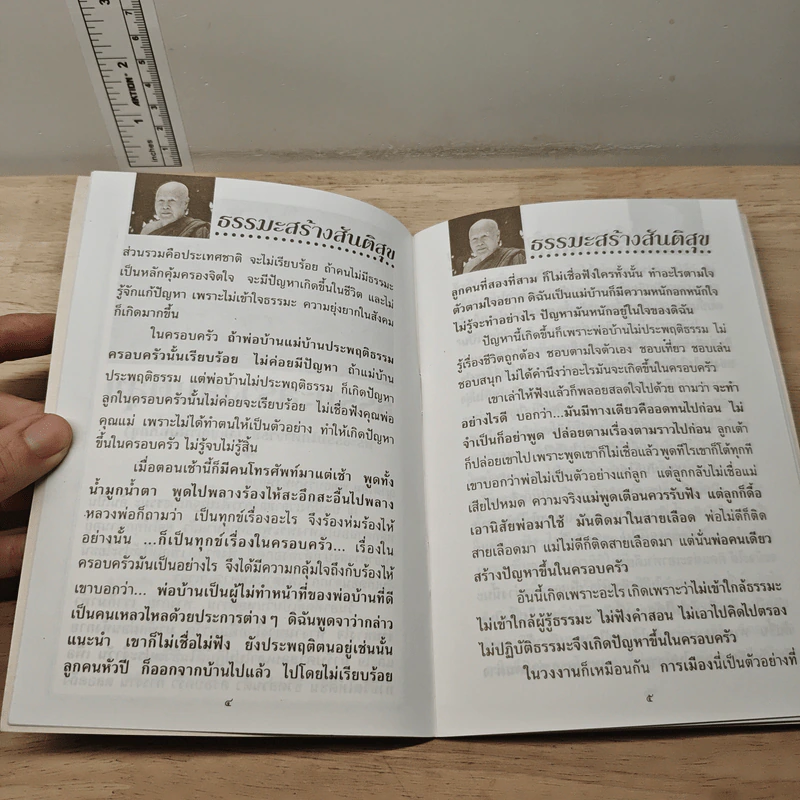 3
2
1
ACTION
inches
ธรรมะสร้างสันติสุข
ส่วนรวมคือประเทศชาติ จะไม่เรียบร้อย ถ้าคนไม่มีธรรมะ
เป็นหลักคุ้มครองจิตใจ จะมีปัญหาเกิดขึ้นในชีวิต และไม่
รู้จักแก้ปัญหา เพราะไม่เข้าใจธรรมะ ความยุ่งยากในสังคม
ก็เกิดมากขึ้น
ในครอบครัว ถ้าพ่อบ้านแม่บ้านประพฤติธรรม
ครอบครัวนั้นเรียบร้อย ไม่ค่อยมีปัญหา ถ้าแม่บ้าน
ประพฤติธรรม แต่พ่อบ้านไม่ประพฤติธรรม ก็เกิดปัญหา
ลูกในครอบครัวนั้นไม่ค่อยจะเรียบร้อย ไม่เชื่อฟังคุณพ่อ
คุณแม่ เพราะไม่ได้ทำตนให้เป็นตัวอย่าง ทำให้เกิดปัญหา
ขึ้นในครอบครัว ไม่รู้จบไม่รู้สิ้น
เมื่อตอนเช้านี้ก็มีคนโทรศัพท์มาแต่เช้า พูดทั้ง
น้ำมูกน้ำตา พูดไปพลางร้องไห้สะอึกสะอื้นไปพลาง
หลวงพ่อก็ถามว่า เป็นทุกข์เรื่องอะไร จึงร้องห่มร้องไห้
อย่างนั้น ...ก็เป็นทุกข์เรื่องในครอบครัว... เรื่องใน
ครอบครัวมันเป็นอย่างไร จึงได้มีความกลุ้มใจถึงกับร้องไห้
เขาบอกว่า... พ่อบ้านเป็นผู้ไม่ทำหน้าที่ของพ่อบ้านที่ดี
เป็นคนเหลวไหลด้วยประการต่างๆ ดิฉันพูดจาว่ากล่าว
แนะนำ เขาก็ไม่เชื่อไม่ฟัง ยังประพฤติตนอยู่เช่นนั้น
ลูกคนหัวปี ก็ออกจากบ้านไปแล้ว ไปโดยไม่เรียบร้อย
๔
ธรรมะสร้างสันติสุข
ลูกคนที่สองที่สาม ก็ไม่เชื่อฟังใครทั้งนั้น ทำอะไรตามใจ
ตัวตามใจอยาก ดิฉันเป็นแม่บ้านก็มีความหนักอกหนักใจ
ไม่รู้จะทำอย่างไร ปัญหามันหนักอยู่ในใจของดิฉัน
ปัญหานี้เกิดขึ้นก็เพราะพ่อบ้านไม่ประพฤติธรรม ไม่
รู้เรื่องชีวิตถูกต้อง ชอบตามใจตัวเอง ชอบเที่ยว ชอบเล่น
ชอบสนุก ไม่ได้คำนึงว่าอะไรมันจะเกิดขึ้นในครอบครัว
เขาเล่าให้ฟังแล้วก็พลอยสลดใจไปด้วย ถามว่า จะทำ
อย่างไรดี บอกว่า...มันมีทางเดียวคืออดทนไปก่อน ไม่
จำเป็นก็อย่าพูด ปล่อยตามเรื่องตามราวไปก่อน ลูกเต้า
ก็ปล่อยเขาไป เพราะพูดเขาก็ไม่เชื่อแล้วพูดทีไรเขาก็โต้ทุกที
เขาบอกว่าพ่อไม่เป็นตัวอย่างแก่ลูก แต่ลูกกลับไม่เชื่อแม่
เสียไปหมด ความจริงแม่พูดเตือนควรรับฟัง แต่ลูกก็ดื้อ
เอานิสัยพ่อมาใช้ มันติดมาในสายเลือด พ่อไม่ดีก็ติด
สายเลือดมา แม่ไม่ดีก็ติดสายเลือดมา แต่นั่นพ่อคนเดียว
สร้างปัญหาขึ้นในครอบครัว
อันนี้เกิดเพราะอะไร เกิดเพราะว่าไม่เข้าใกล้ธรรมะ
ไม่เข้าใกล้ผู้รู้ธรรมะ ไม่ฟังคำสอน ไม่เอาไปคิดไปตรอง
ไม่ปฏิบัติธรรมะจึงเกิดปัญหาขึ้นในครอบครัว
ในวงงานก็เหมือนกัน การเมืองนี้เป็นตัวอย่างที่
๕